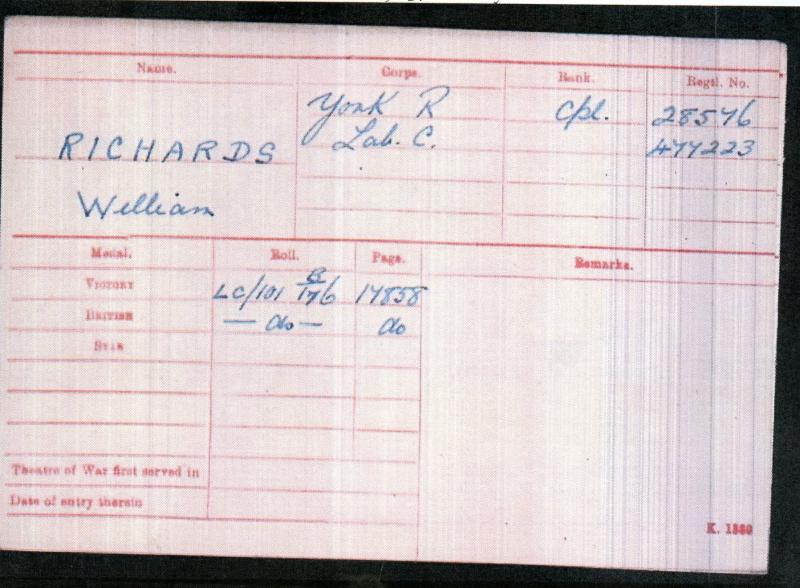 Name. Corps. Rank. Regtl. No.
York R Cpl. 28546
RICHARDS Lab. C. 477223
William
Medal. Roll. Page. Remarks.
VICTORY LC/101 B/176 14858
BRITISH — do — do
STAR
Theatre of War first served in
Date of entry therein
K. 1380